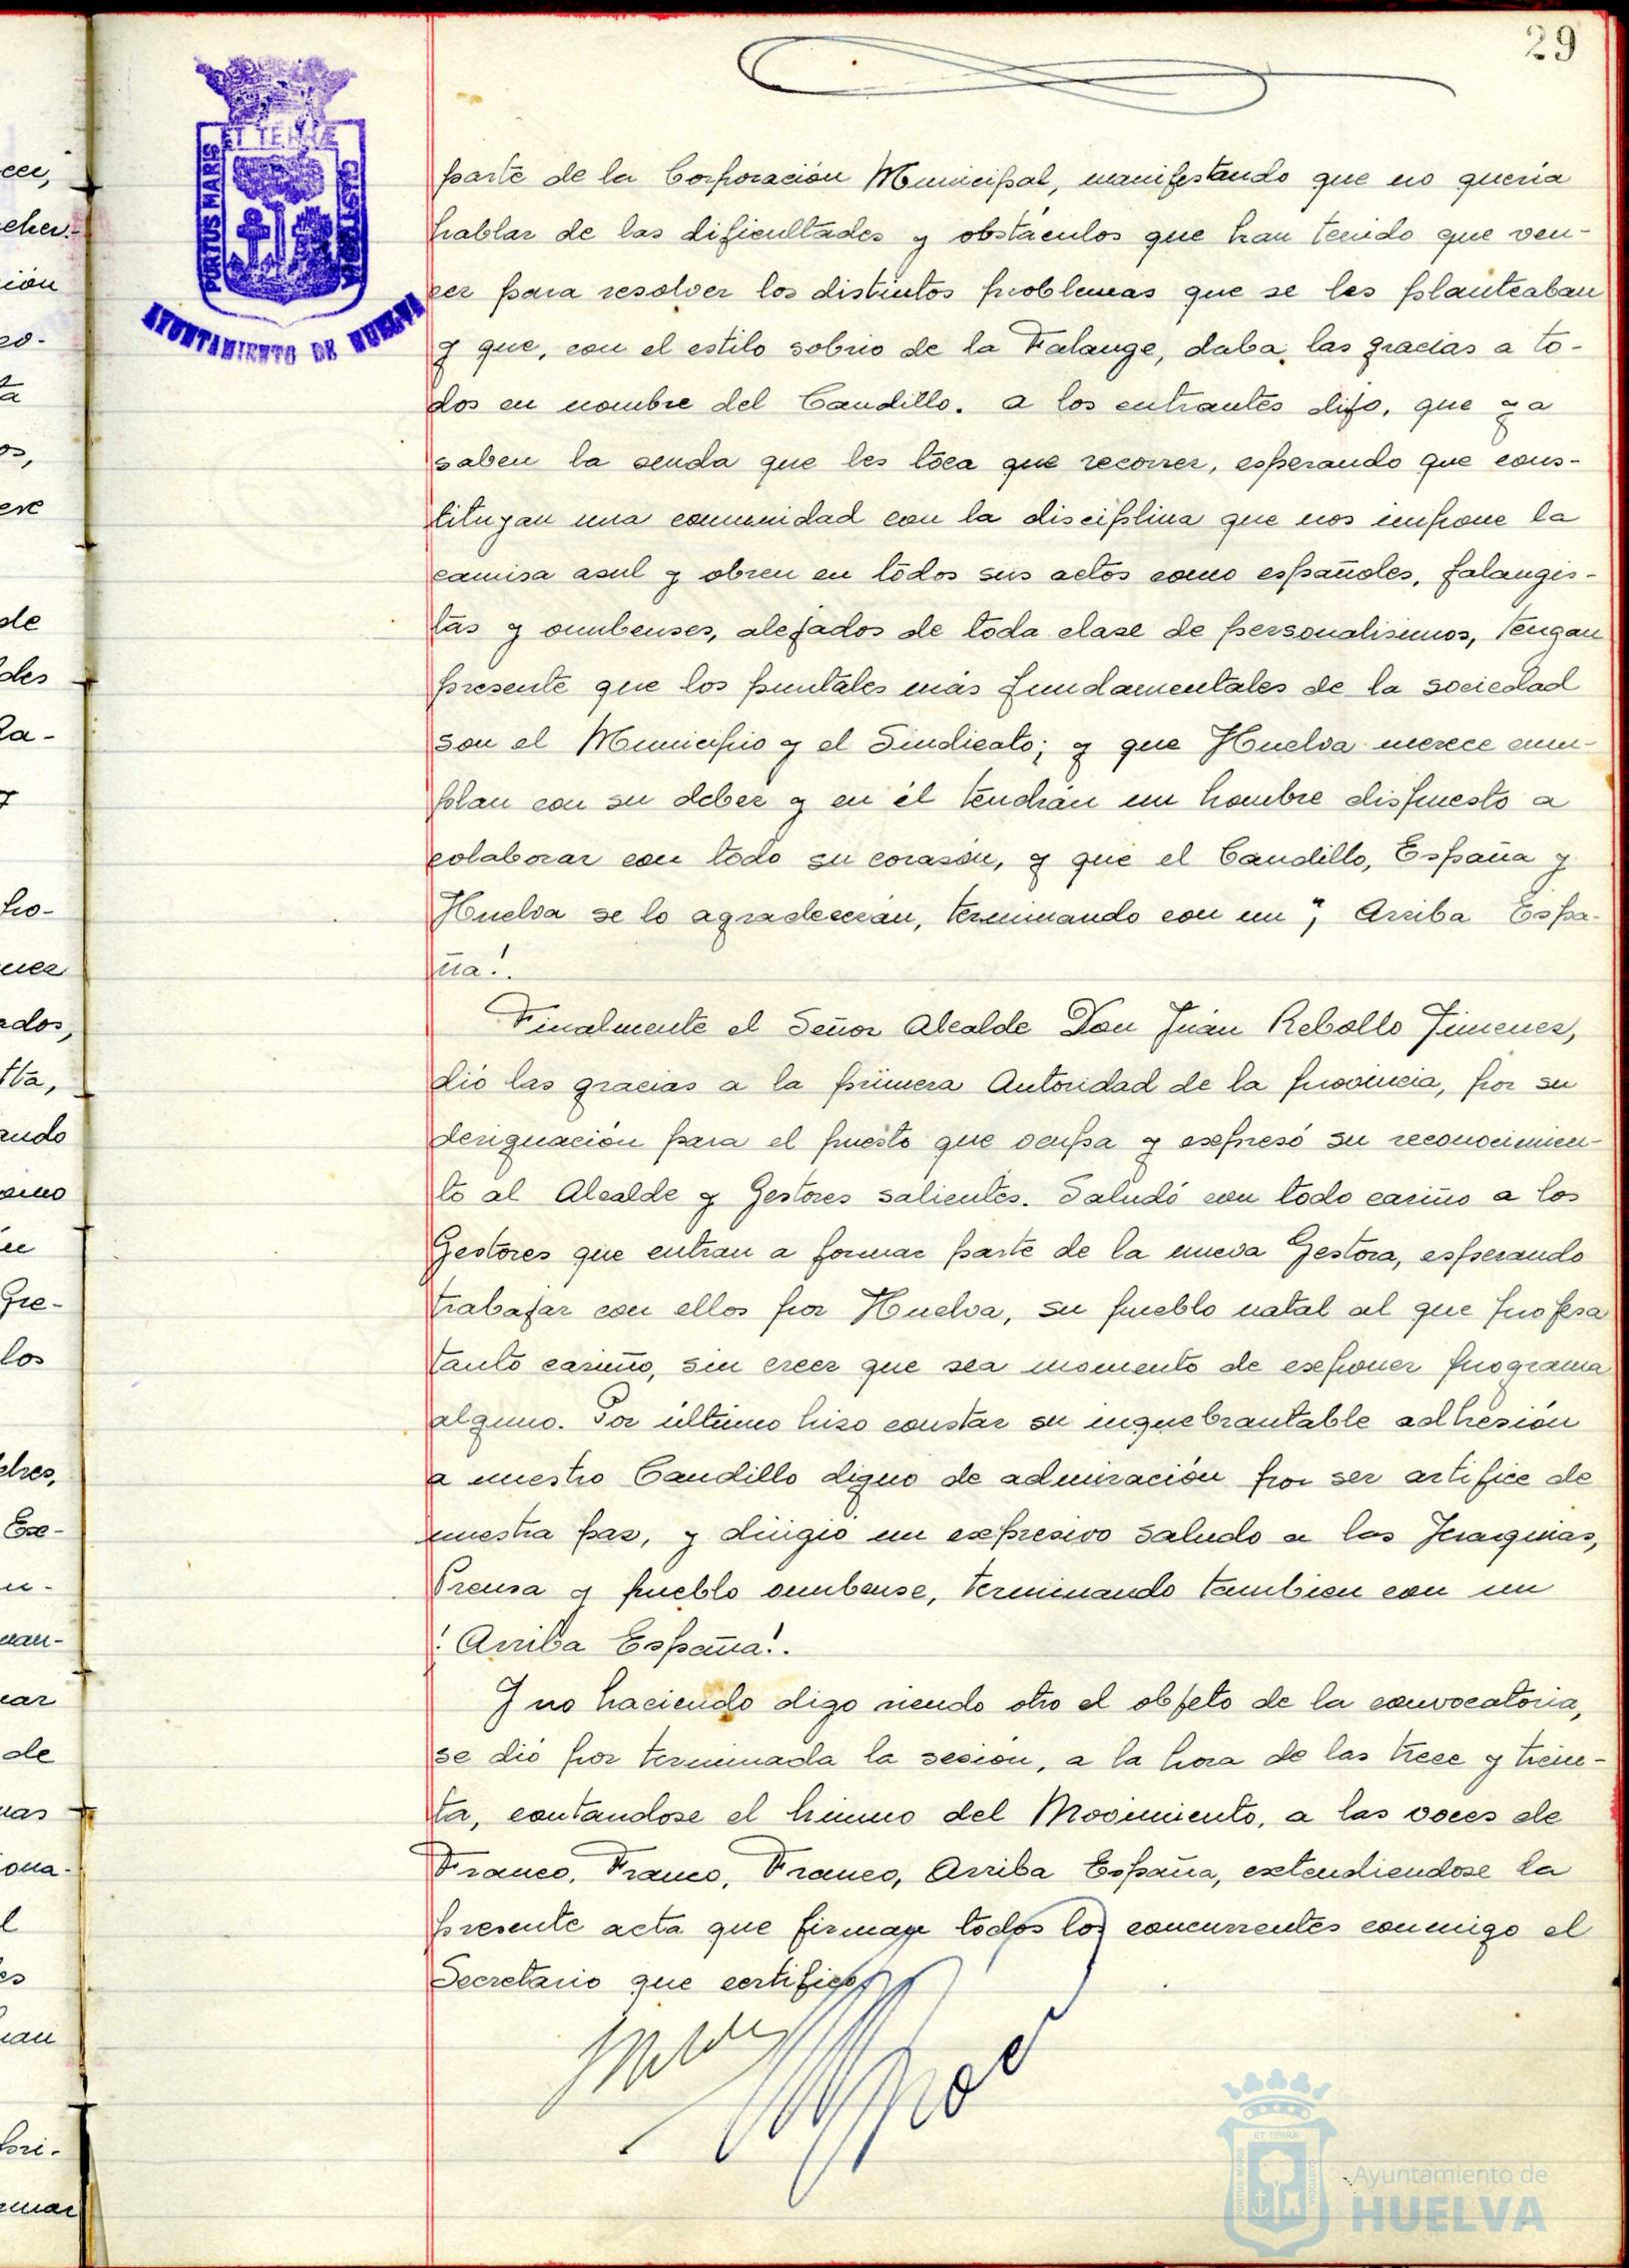 29
PORTUS MARIS ET TERRÆ CUSTODIA
AYUNTAMIENTO DE HUELVA
parte de la Corporación Municipal, manifestando que no quería
hablar de las dificultades y obstáculos que han tenido que ven-
cer para resolver los distintos problemas que se les planteaban
y que, con el estilo sobrio de la Falange, daba las gracias a to-
dos en nombre del Caudillo. A los entrantes dijo, que ya
saben la senda que les toca que recorrer, esperando que cons-
tituyan una comunidad con la disciplina que nos impone la
camisa asul y obren en todos sus actos como españoles, falangis-
tas y onubenses, alejados de toda clase de personalismos, tengan
presente que los puntales más fundamentales de la sociedad
son el Municipio y el Sindicato; y que Huelva merece cum-
plan con su deber y en él tendrán un hombre dispuesto a
colaborar con todo su corasón, y que el Caudillo, España y
Huelva se lo agradecerán, terminando con un "¡ Arriba Espa-
ña!.
Finalmente el Señor Alcalde Don Juán Rebollo Jimenez,
dió las gracias a la primera Autoridad de la provincia, por su
designación para el puesto que ocupa y expresó su reconocimien-
to al Alcalde y Gestores salientes. Saludó con todo cariño a los
Gestores que entran a formar parte de la nueva Gestora, esperando
trabajar con ellos por Huelva, su pueblo natal al que profesa
tanto cariño, sin creer que sea momento de exponer programa
alguno. Por último hizo constar su inquebrantable adhesión
a nuestro Caudillo digno de admiración por ser artifice de
nuestra paz, y dirigió un expresivo saludo a las Jerarquias,
Prensa y pueblo onubense, terminando tambien con un
! Arriba España!.
Y no haciendo digo siendo otro el objeto de la convocatoria,
se dió por terminada la sesión, a la hora de las trece y trein-
ta, cantandose el himno del Movimiento, a las voces de
Franco, Franco, Franco, Arriba España, extendiendose la
presente acta que firman todos los concurrentes conmigo el
Secretario que certifico
Ayuntamiento de
HUELVA